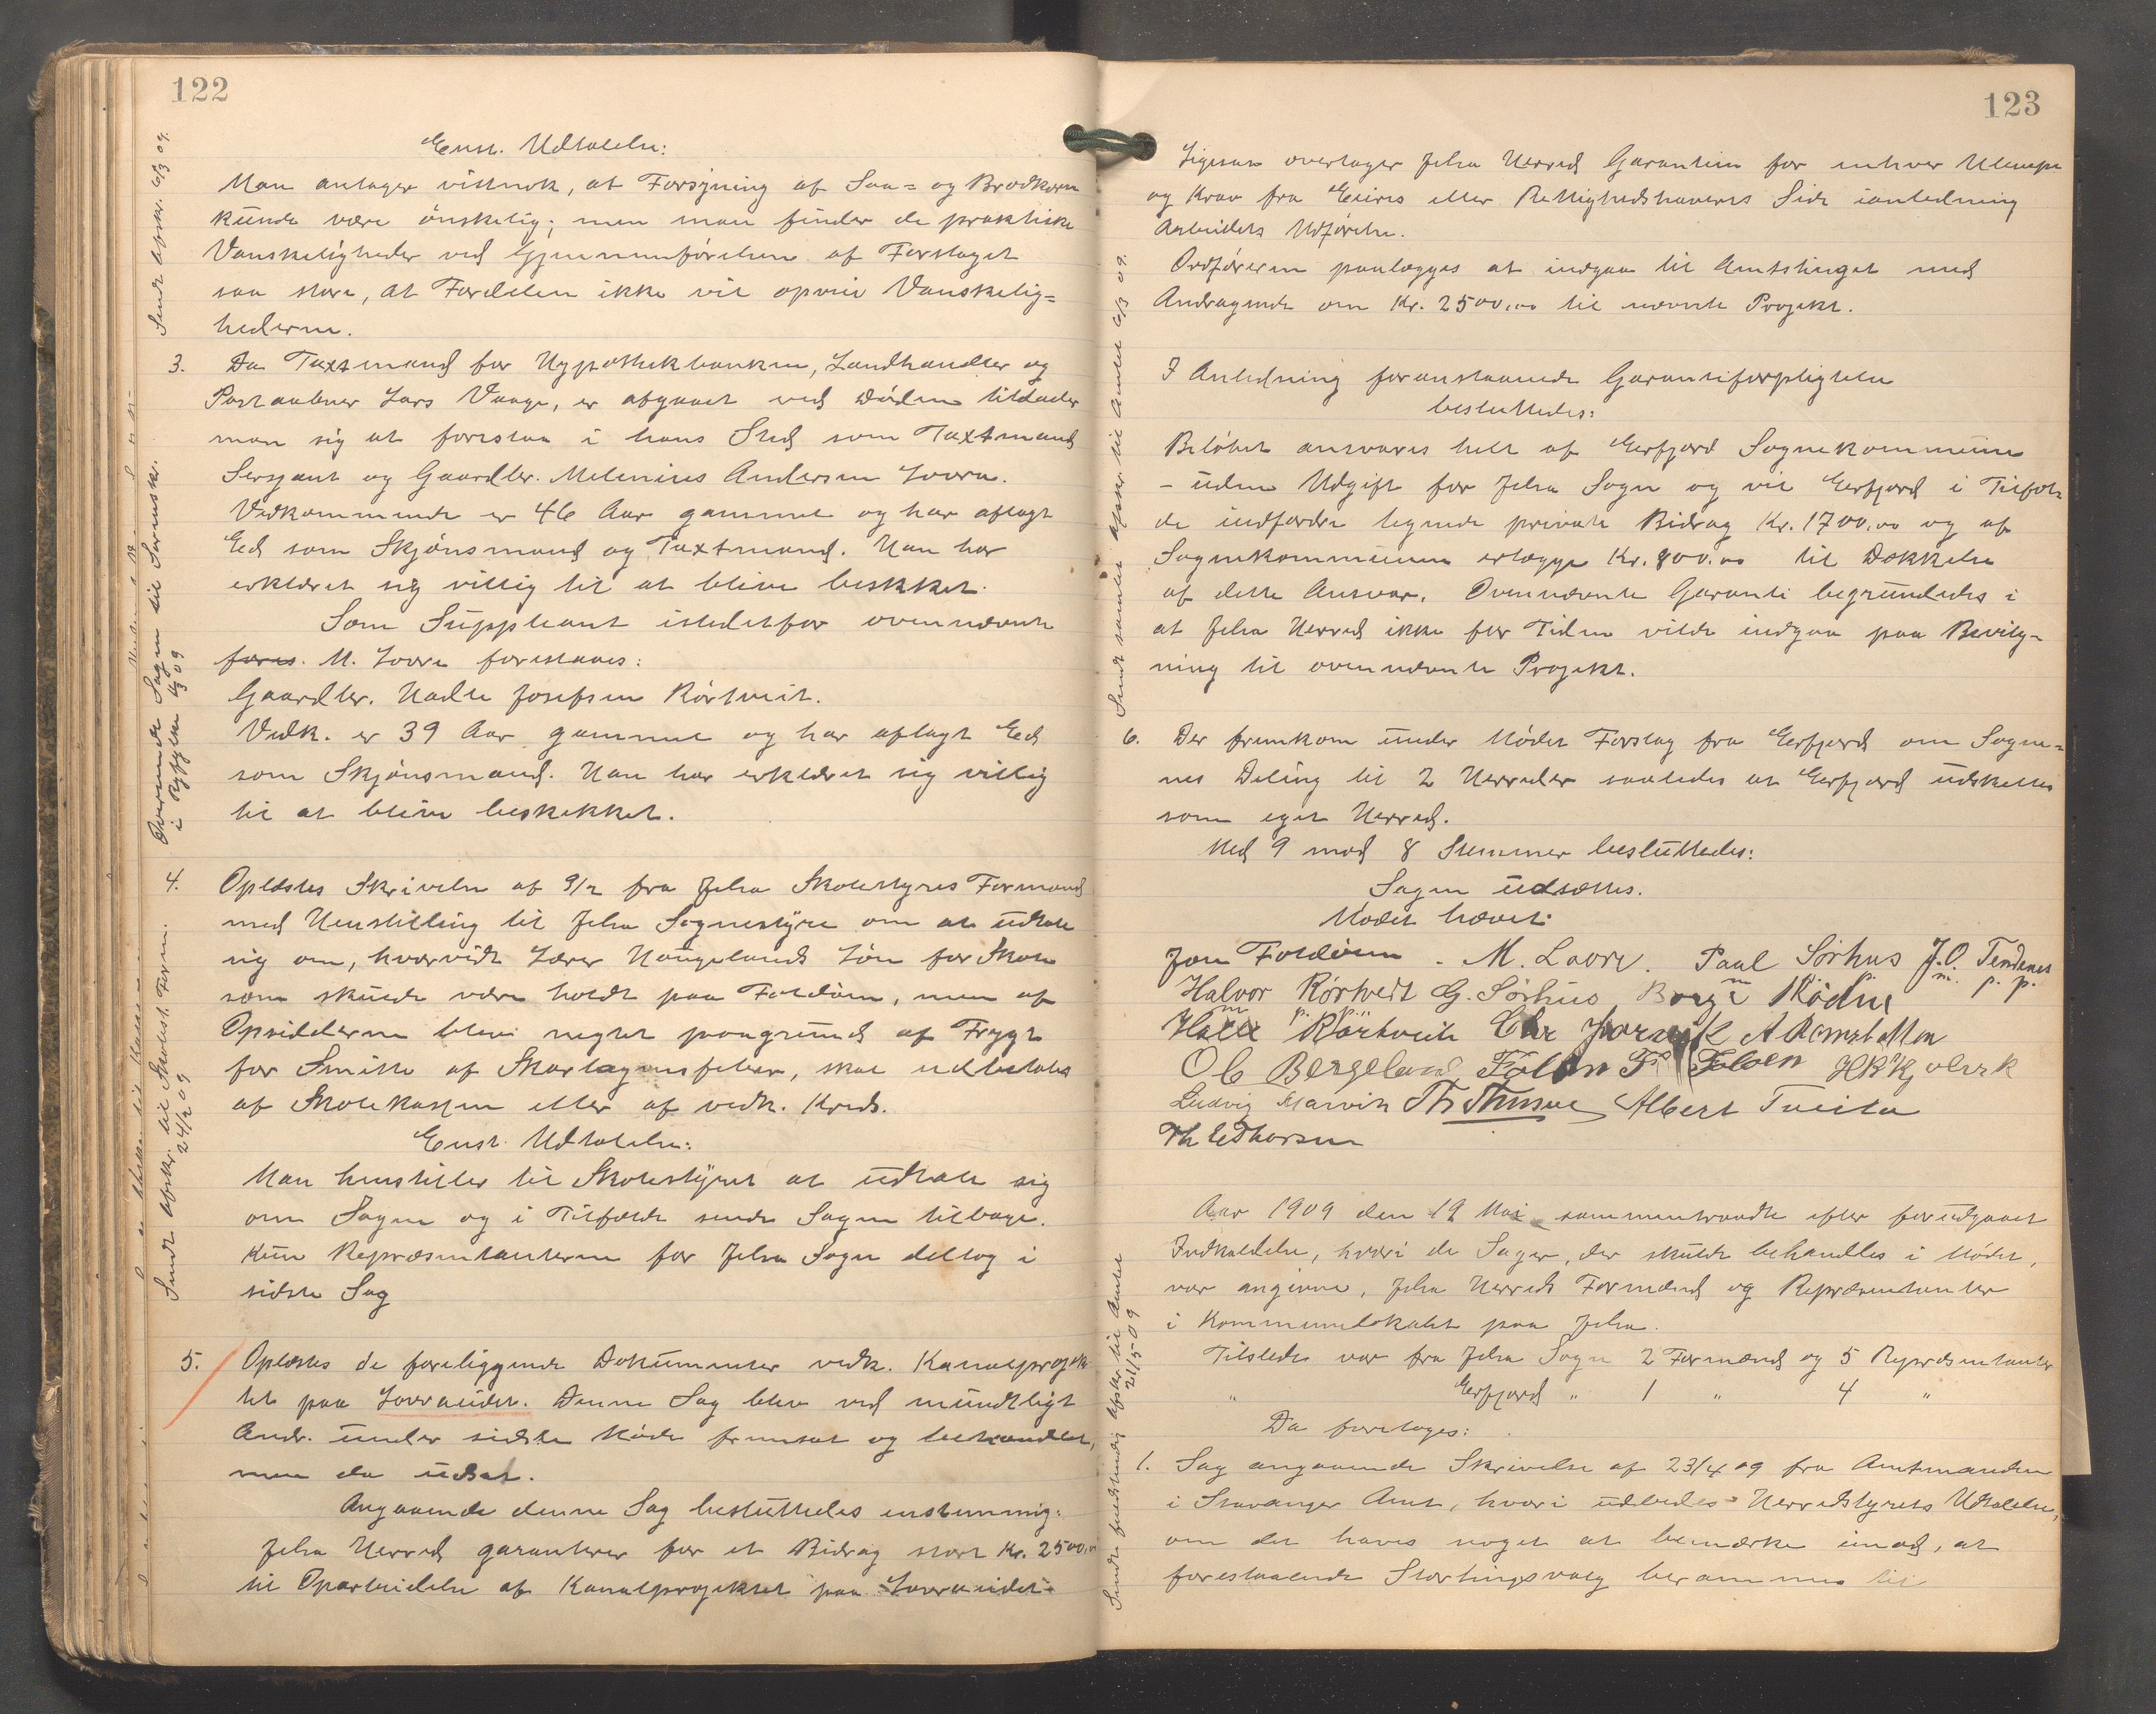 122
Enst. Udtalelse:
Man antager vistnok, at Forsyning af Saa= og Brødkorn
kunde være ønskelig; men man finder de praktiske
Vanskeligheder ved Gjennemførelsen af Forslaget
saa store, at Fordelen ikke vil opveie Vanskelig=
hederne.
3. Da Taxtmand for Hypothekbanken, Landhandler og
Postaabner Lars Vaage, er afgaaet ved Døden tillader
man sig at foreslaa i hans Sted som Taxtmand
Sersjant og Gaardbr. Melenius Andersen Lovra.
Vedkommende er 46 Aar gammel og har aflagt
Ed som Skjønsmand og Taxtmand. Han har
erklæret sig villig til at blive beskikket.
Som Suppleant istedetfor ovennævnte
M. Lovra foreslaaes:
Gaardbr. Halle Josefsen Rørtveit.
Vedk. er 39 Aar gammel og har aflagt Ed
som Skjønsmand. Han har erklæret sig villig
til at blive beskikket.
4. Oplæstes Skrivelse af 9/2 fra Jelsa Skolestyres Formand
med Henstilling til Jelsa Sognestyre om at udtale
sig om, hvorvidt Lærer Haugelands Løn for Skole
som skulde være holdt paa Foldøen, men af
Opsidderne blev negtet paagrund af Frygt
for Smitte af Skarlagensfeber, skal udbetales
af Skolekassen eller af vedk. Kreds.
Enst. Udtalelse:
Man henstiller til Skolestyret at udtale sig
om Sagen og i Tilfælde sende Sagen tilbage.
Kun Repræsentanterne for Jelsa Sogn deltog i
sidste Sag
5. Oplæstes de foreliggende Dokumenter vedk. Kanalprojek
tet paa Lovraeidet. Denne Sag blev ved mundtligt
Andr. under sidste Møde fremsat og behandlet,
men da udsat.
Angaaende denne Sag besluttedes enstemmig:
Jelsa Herred garanterer for et Bidrag stort Kr. 2500,00
til Oparbeidelse af Kanalprojektet paa Lovraeidet.
Sendt Afskr. 6/3 09.
Ovennævnte Sagen til Sorenskr.
i Ryfylke 4/3 09
Sendt Afskr. til Skolest. Form.
24/2 09
123
Ligesaa overtager Jelsa Herred Garantien for enhver Ulempe
og Krav fra Eieres eller Rettighedshaveres Side ianledning
Arbeidets Udførelse.
Ordføreren paalægges at indgaa til Amtstinget med
Andragende om Kr. 2500,00 til nævnte Projekt.
I Anledning foranstaaende Garantiforpligtelse
besluttedes:
Beløbet ansvares helt af Erfjord Sognekommune
– uden Udgift for Jelsa Sogn og vil Erfjord i Tilfæl
de indfordre tegnede private Bidrag Kr. 1700,00 og af
Sognekommunen erlægge Kr. 800,00 til Dækkelse
af dette Ansvar. Ovennævnte Garanti begrundedes i
at Jelsa Herred ikke for Tiden vilde indgaa paa Bevilg=
ning til ovennævnte Projekt.
6. Der fremkom under Mødet Forslag fra Erfjord om Sogne=
nes Deling til 2 Herreder saaledes at Erfjord udskilles
som eget Herred.
Med 9 mod 8 Stemmer besluttedes:
Sagen udsættes.
Mødet hævet.
Jon Foldøen. M. Lovre. Paul Sørhus J.O. Tendenes
m. p. p.
Halvor Rørtvedt G. Sørhus Børge Hødne
Halle Rørtveit Chr A Ramsbotten
m p. p.
Ole Bergeland
Ludvig Marvik Albert Tveita
Aar 1909 den 19 Mai sammentraadte efter forudgaaet
Indkaldelse, hvori de Sager, der skulde behandles i Mødet,
var angivne, Jelsa Herreds Formænd og Repræsentanter
i Kommunelokalet paa Jelsa.
Tilstede var fra Jelsa Sogn 2 Formænd og 5 Repræsentanter
" Erfjord " 1 " 4 "
Da foretoges:
1. Sag angaaende Skrivelse af 23/4 09 fra Amtmanden
i Stavanger Amt, hvori udbedes Herredstyrets Udtalelse,
om der haves noget at bemærke imod, at
forestaaende Stortingsvalg berammes til
Sendt samlet Afskr. til Amtet 6/3 09.
Sendt Afskr. til Amtet
21/5 09